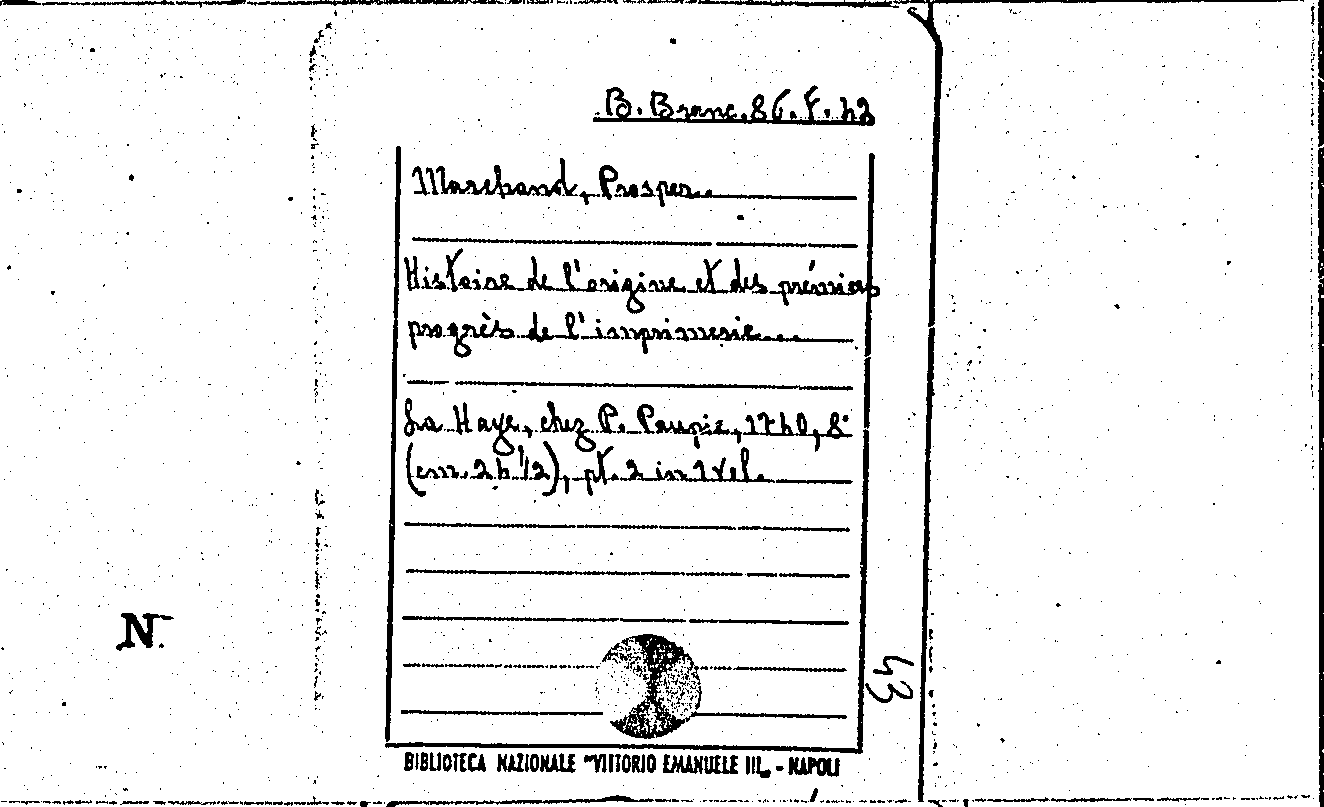 B. Branc. 86. F. 43
Marchand, Prosper.
Histoire de l'origine et des prémiers
progrès de l'imprimerie...
La Haye, chez P. Paupie, 1740, 8°
(cm. 24 1/2), pt. 2 in 1 vol.
N.
43
BIBLIOTECA NAZIONALE "VITTORIO EMANUELE III„ - NAPOLI